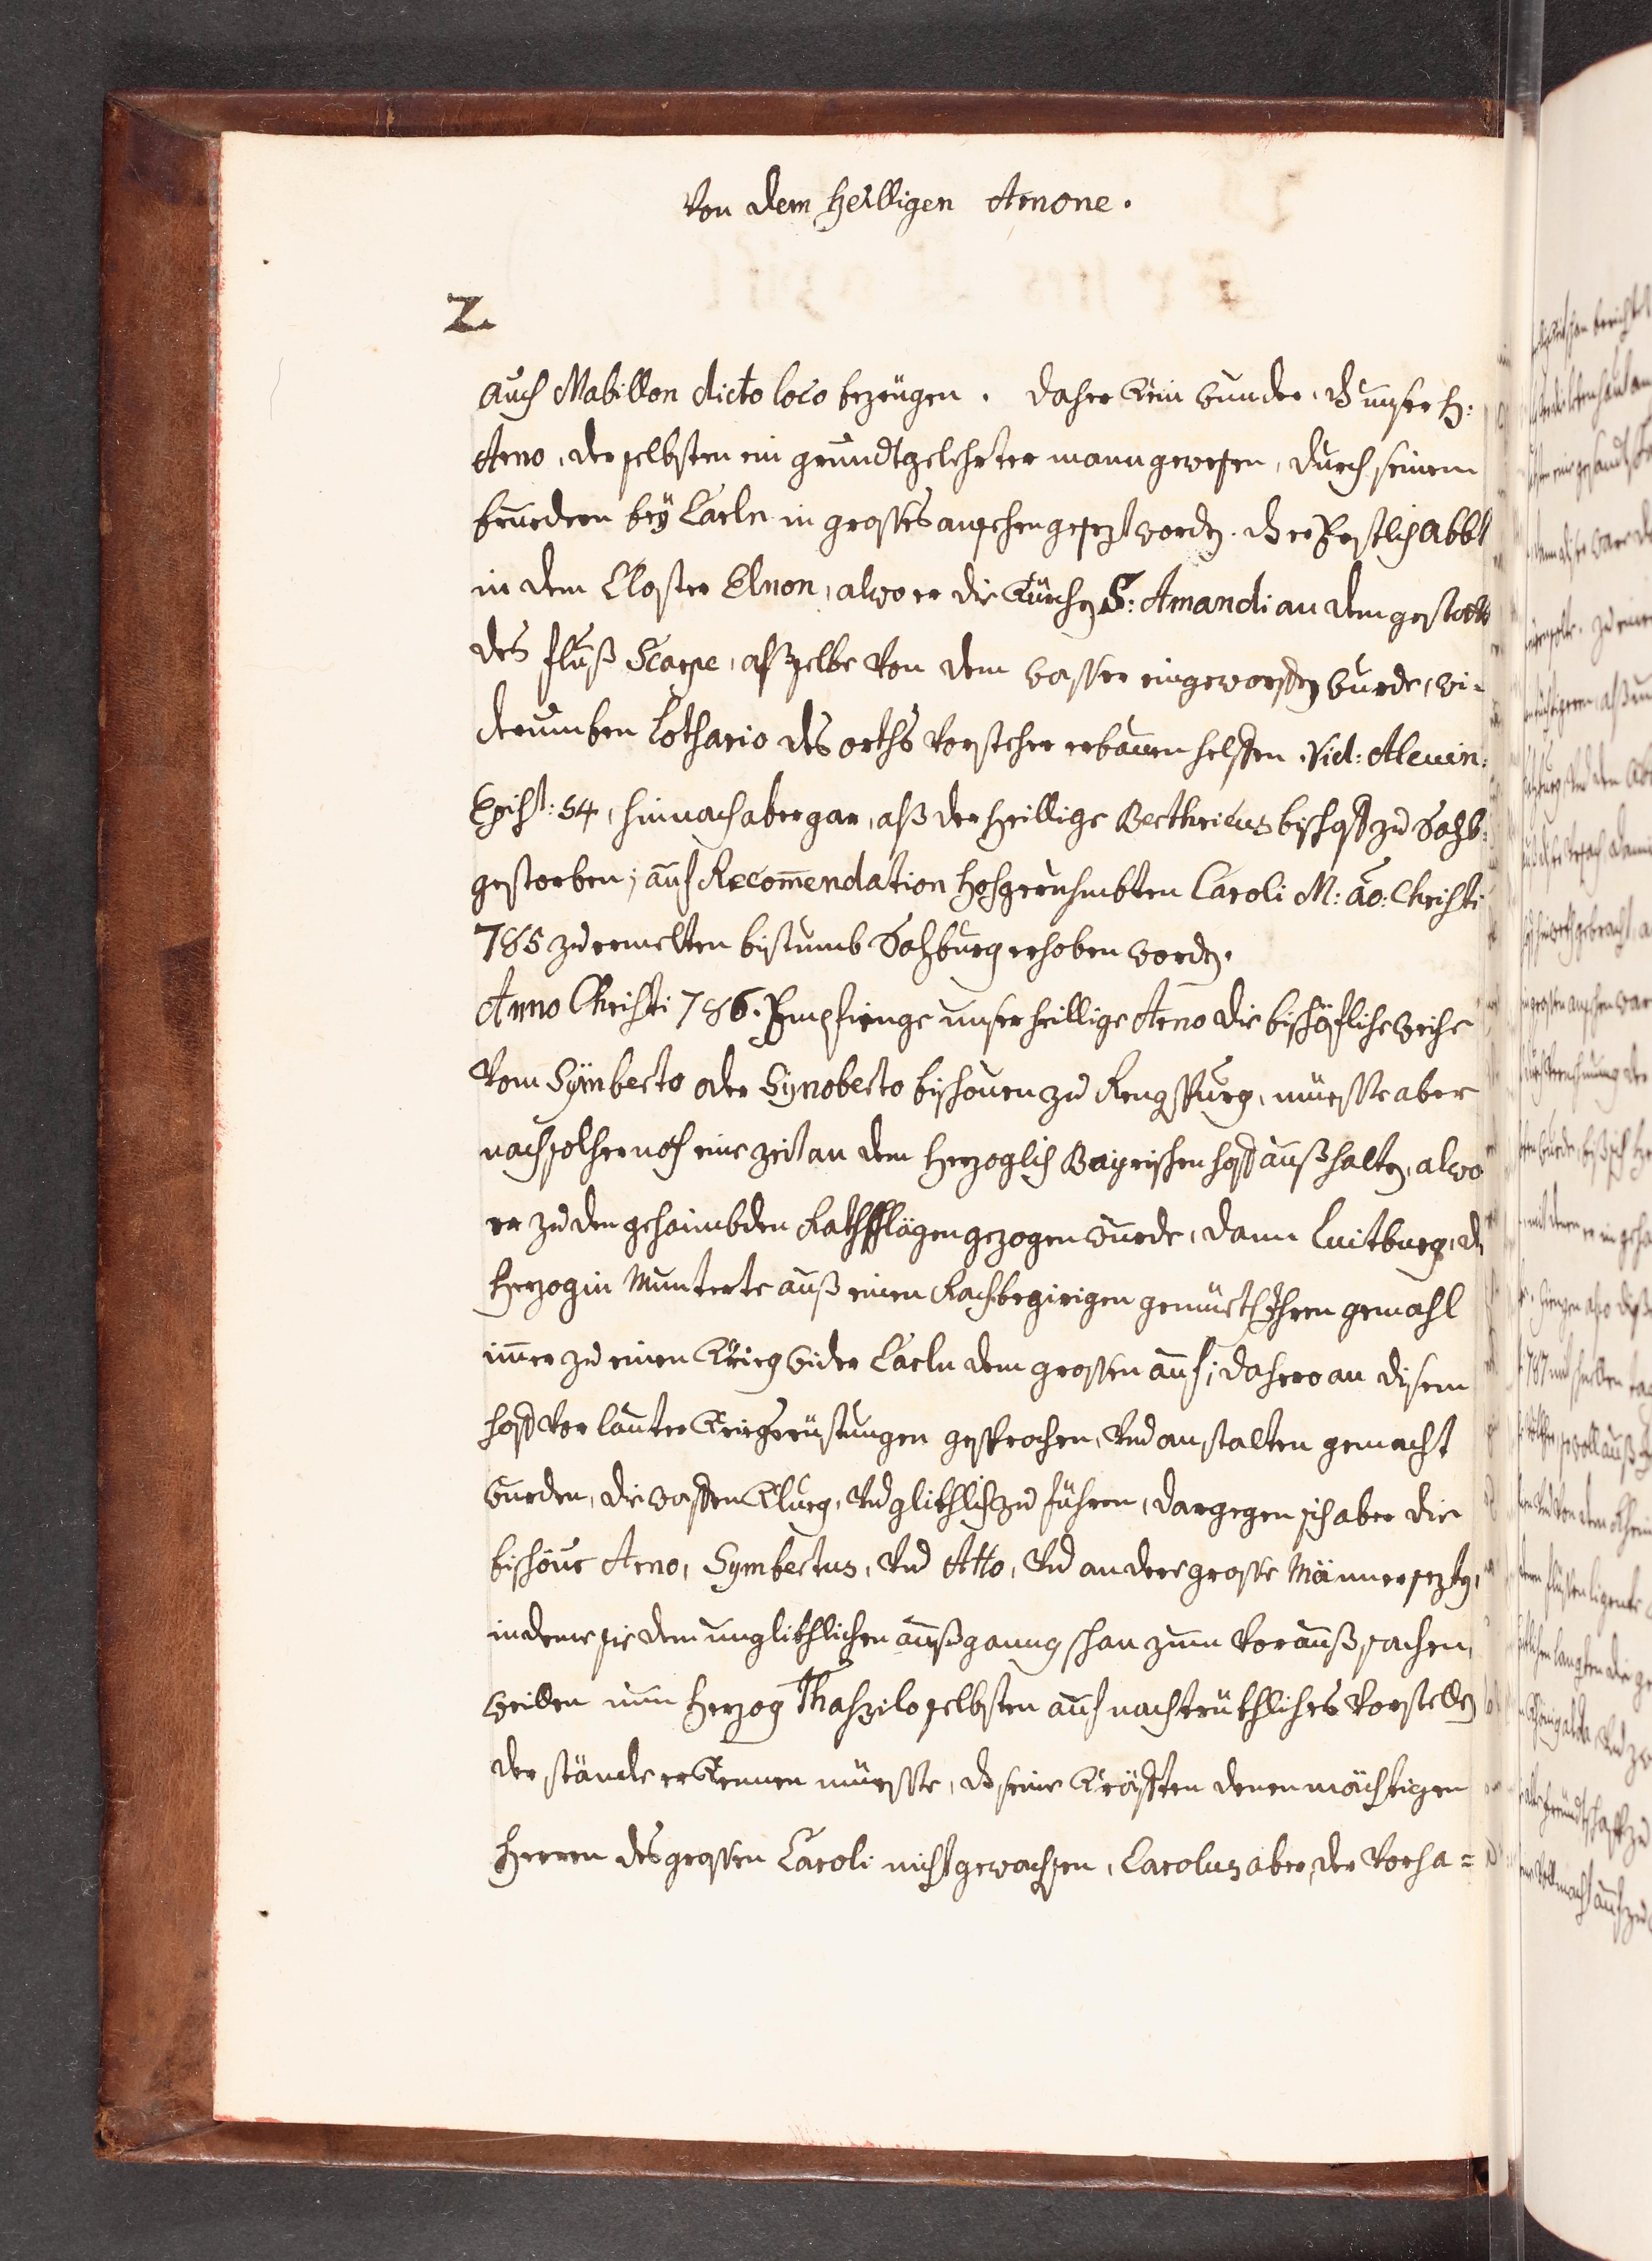 Von dem heilligen Arnone.
2
auch Mabillon dicto loco bezeügen. daher kein wunder, dz unser H:
Arno, der selbsten ein grundtgelehrter mann gewesen, durch seinem
bruedern bey Carln in grosses ansehen gesezt worden. dz er Erstlich Abbt
in dem Closter Elnon, alwo er die Kürchen S: Amandi an dem gestatt
des fluß Scarpe, alß selbe von dem wasser eingeworffen wurde, wi-
derumben Lothario des orths vorsteher erbauen helffen. Vid: Alcuin:
Epist: 54, hinnach aber gar, alß der heillige Berthricus bischoff zu Salzb:
gestorben; auf Recom̄endation hochgeruhmbten Caroli M: ao: Christi
785 zu ermelten bistumb Salzburg erhoben worden.
Anno Christi 786. Empfienge unser heillige Arno die bischöfliche weihe
vom Symberto oder Synoberto bischouen zu Rengspurg, muesste aber
nach solcher noch eine zeit an dem herzoglich Bayrischen hoff außhalten, alwo
er zu den gehaimbden Rathschlägen gezogen wurde, dann Luitburg, die
herzogin Munterte auß einen Rachbegirigen gemüeth Ihren gemahl
im̄er zu einen Krieg wider Carln dem grossen auf; dahero an disem
hoff vor lauter Kriegsrüstungen gesprochen, Vnd anstalten gemacht
wurden, die waffen Klueg, Vnd glikhlich zu führen, dargegen sich aber die
bischöue Arno, Symbertus, Vnd Atto, Vnd andere grosse Männer sezten,
indeme sie den unglikhlichen außgang schon zum vorauß sachen,
weillen nun herzog Thassilo selbsten auf nachtrükhliches vorstellen
der stände erkennen muesste, dz seine Kräfften denen mächtigen
Herren des grossen Caroli nicht gewachsen, Carolus aber, der vorha=